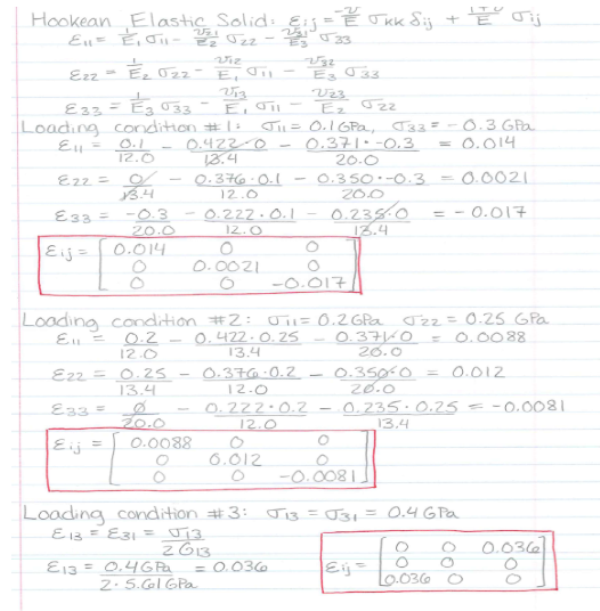 Hookean Elastic Solid: εij = -ν/E σkk δij + 1+ν/E σij
ε11 = 1/E1 σ11 - ν21/E2 σ22 - ν31/E3 σ33
ε22 = 1/E2 σ22 - ν12/E1 σ11 - ν32/E3 σ33
ε33 = 1/E3 σ33 - ν13/E1 σ11 - ν23/E2 σ22
Loading condition #1: σ11 = 0.1 GPa, σ33 = -0.3 GPa
ε11 = 0.1/12.0 - 0.422·0/13.4 - 0.371·-0.3/20.0 = 0.014
ε22 = 0/13.4 - 0.376·0.1/12.0 - 0.350·-0.3/20.0 = 0.0021
ε33 = -0.3/20.0 - 0.222·0.1/12.0 - 0.235·0/13.4 = -0.017
εij = [0.014 0 0
0 0.0021 0
0 0 -0.017]
Loading condition #2: σ11 = 0.2 GPa σ22 = 0.25 GPa
ε11 = 0.2/12.0 - 0.422·0.25/13.4 - 0.371·0/20.0 = 0.0088
ε22 = 0.25/13.4 - 0.376·0.2/12.0 - 0.350·0/20.0 = 0.012
ε33 = 0/20.0 - 0.222·0.2/12.0 - 0.235·0.25/13.4 = -0.0081
εij = [0.0088 0 0
0 0.012 0
0 0 -0.0081]
Loading condition #3: σ13 = σ31 = 0.4 GPa
ε13 = ε31 = σ13/2G13
ε13 = 0.4GPa/2·5.61GPa = 0.036
εij = [0 0 0.036
0 0 0
0.036 0 0]